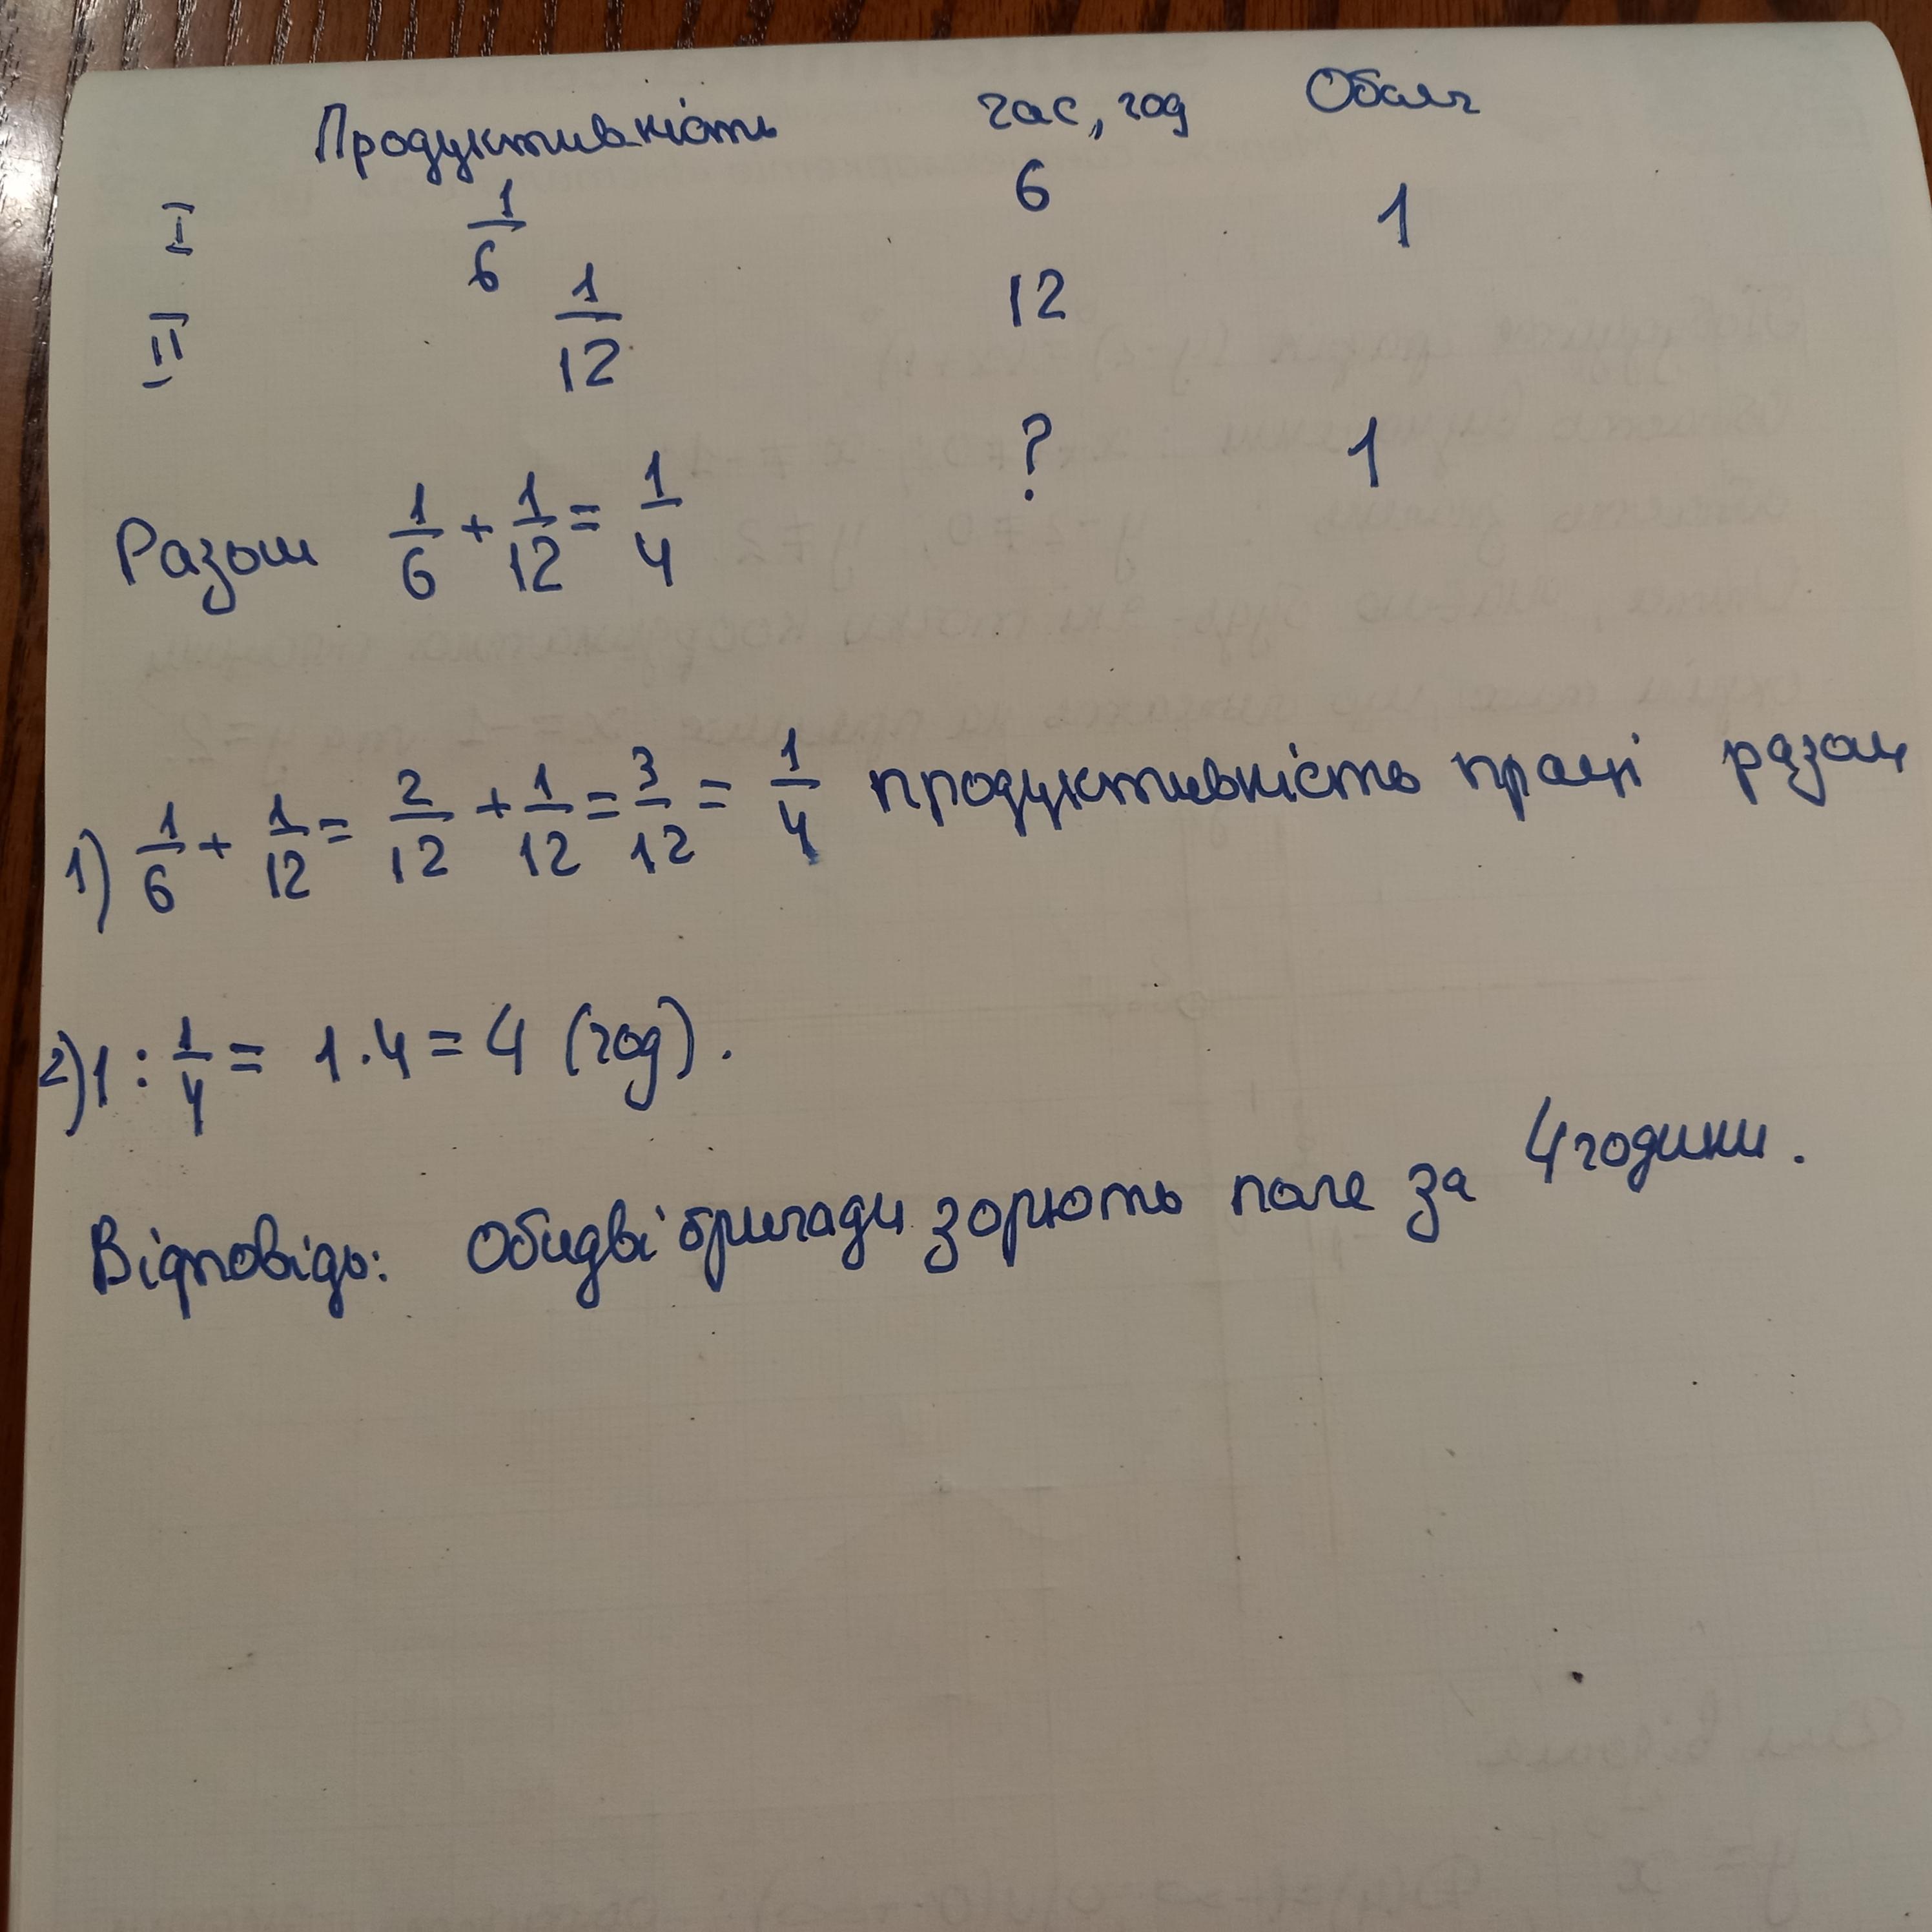 Продуктивність час, год Обсяг
I 1/6 6 1
II 1/12 12
Разом 1/6 + 1/12 = 1/4 ? 1
1) 1/6 + 1/12 = 2/12 + 1/12 = 3/12 = 1/4 продуктивність праці разом
2) 1 : 1/4 = 1 · 4 = 4 (год).
Відповідь: Обидві бригади зорють поле за 4 години.